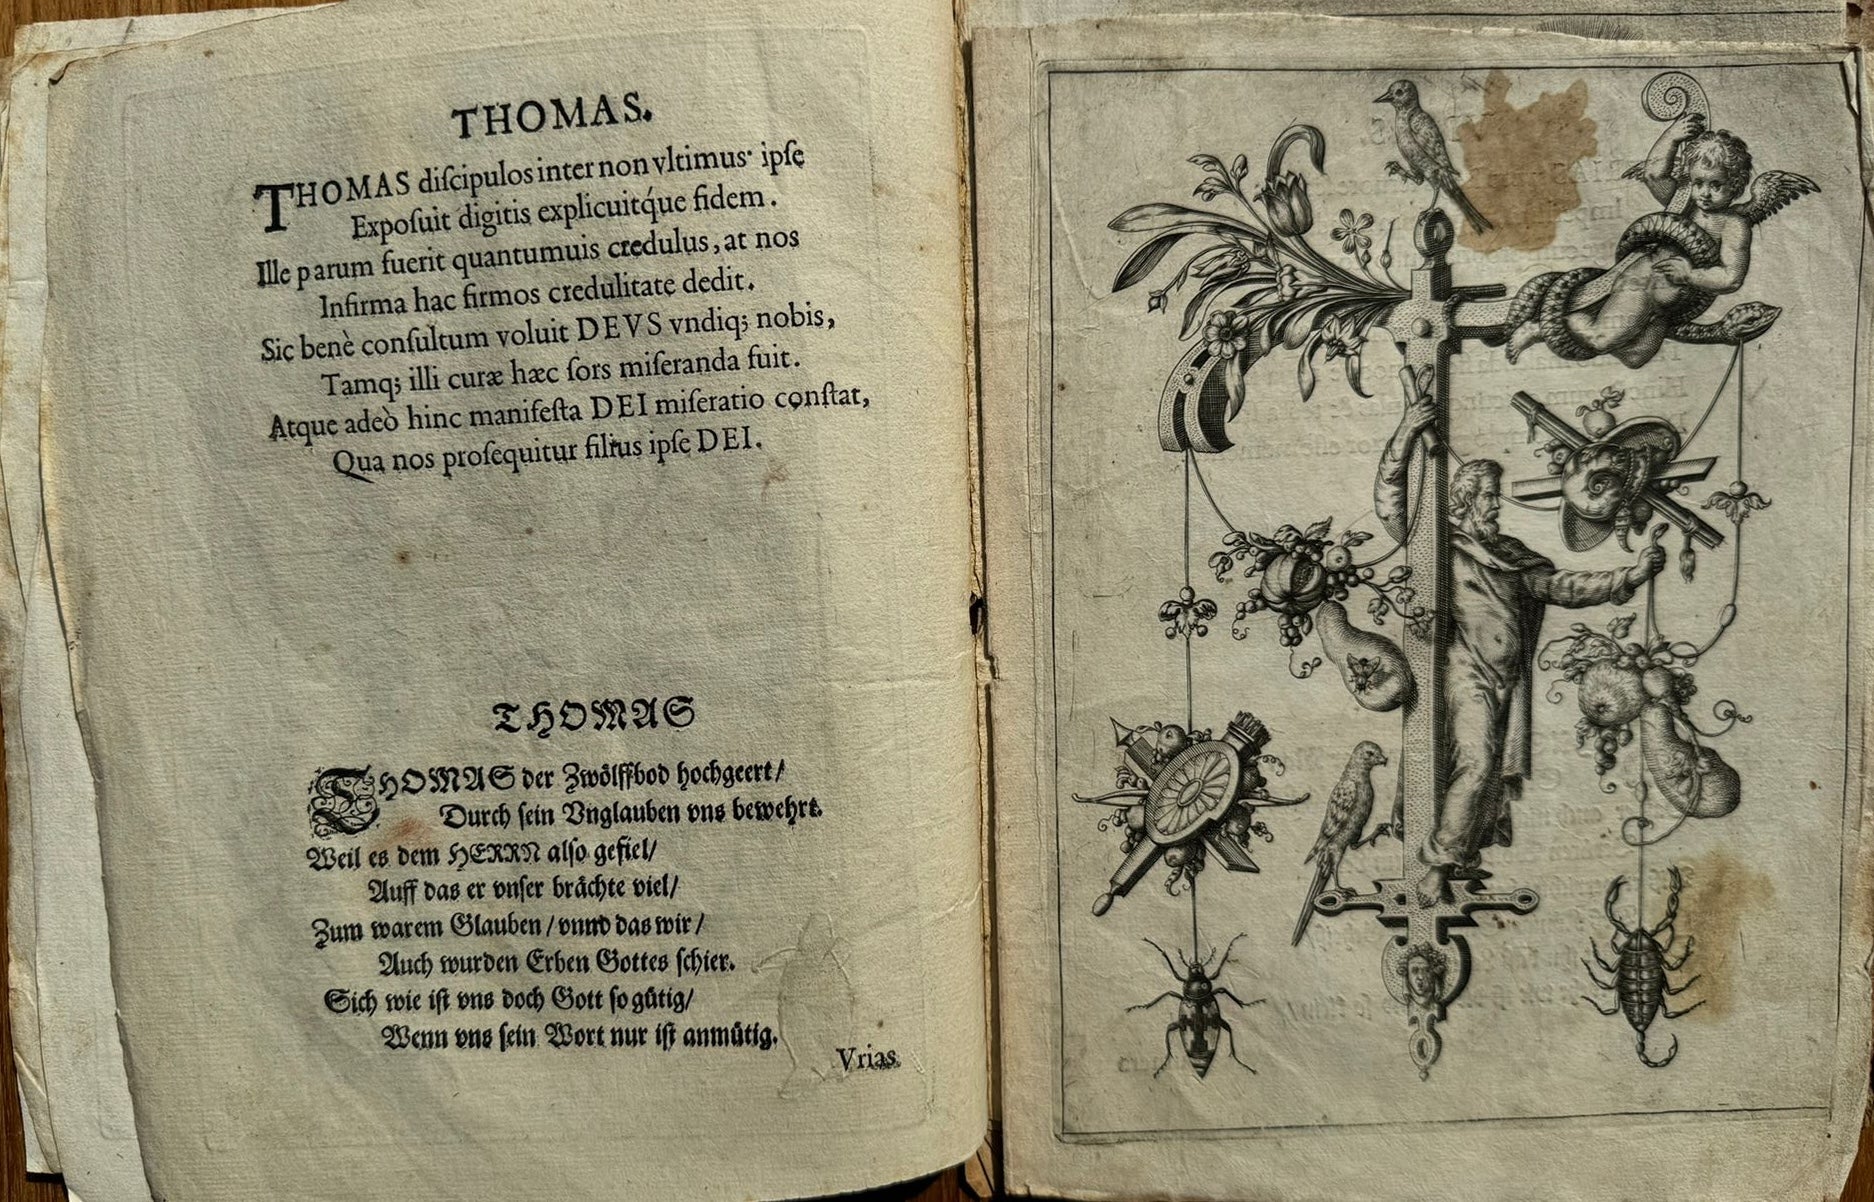 THOMAS.
THOMAS diſcipulos inter non vltimus· ipſe
Expoſuit digitis explicuitq́ue fidem.
Ille parum fuerit quantumuis credulus, at nos
Infirma hac firmos credulitate dedit.
Sic benè conſultum voluit DEVS vndiq; nobis,
Tamq; illi curæ hæc ſors miſeranda fuit.
Atque adeò hinc manifeſta DEI miſeratio conſtat,
Qua nos proſequitur filius ipſe DEI.
THOMAS
THOMAS der Zwölffbod hochgeert/
Durch ſein Vnglauben vns bewehrt.
Weil es dem HERRN alſo gefiel/
Auff das er vnſer brächte viel/
Zum warem Glauben/ vnnd das wir/
Auch wurden Erben Gottes ſchier.
Sich wie iſt vns doch Gott ſo gütig/
Wenn vns ſein Wort nur iſt anmütig.
Vrias